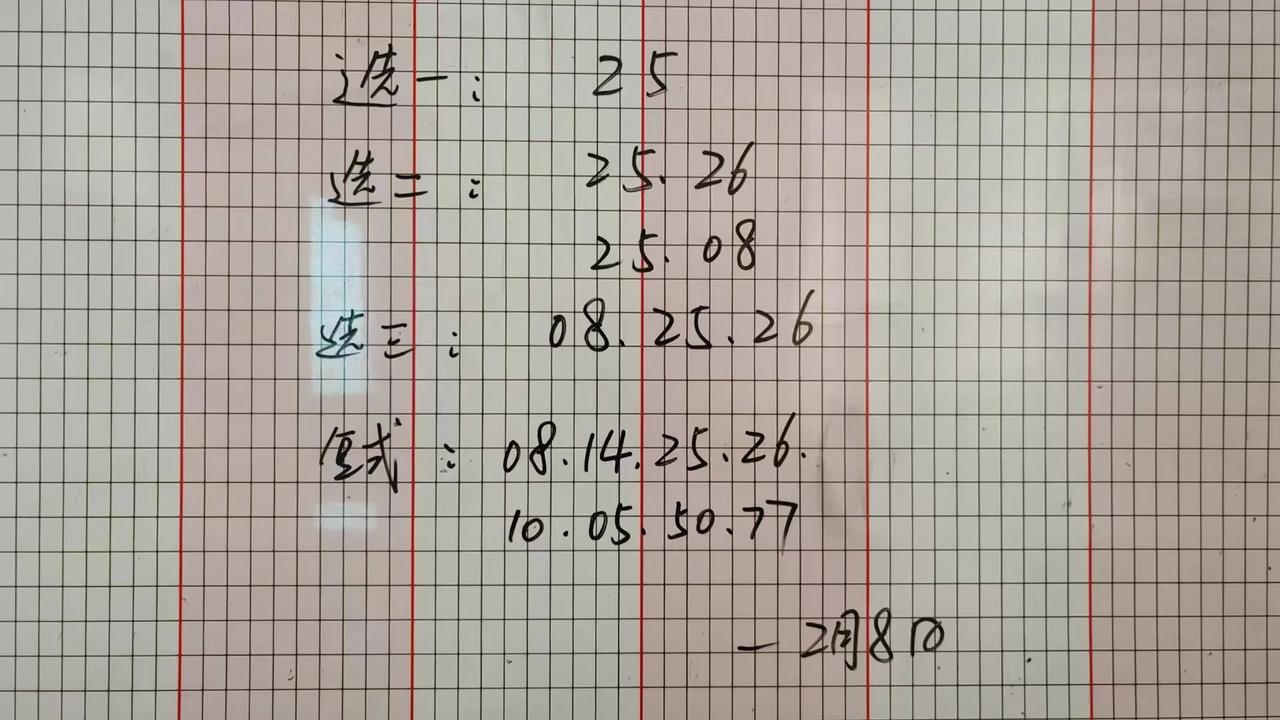 选一: 25
选二: 25. 26
25. 08
选三: 08. 25. 26
复式: 08.14.25.26.
10.05.50.77
— 2月8日